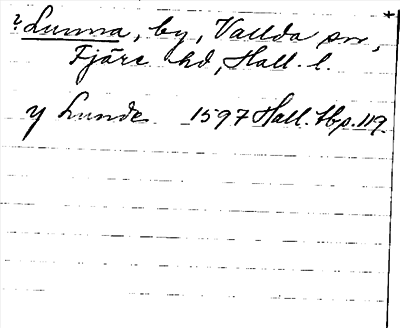 ? Lunna, by, Vallda sn,
Fjäre hd, Hall. l.
y Lunde 1597 Hall. tbp. 119.